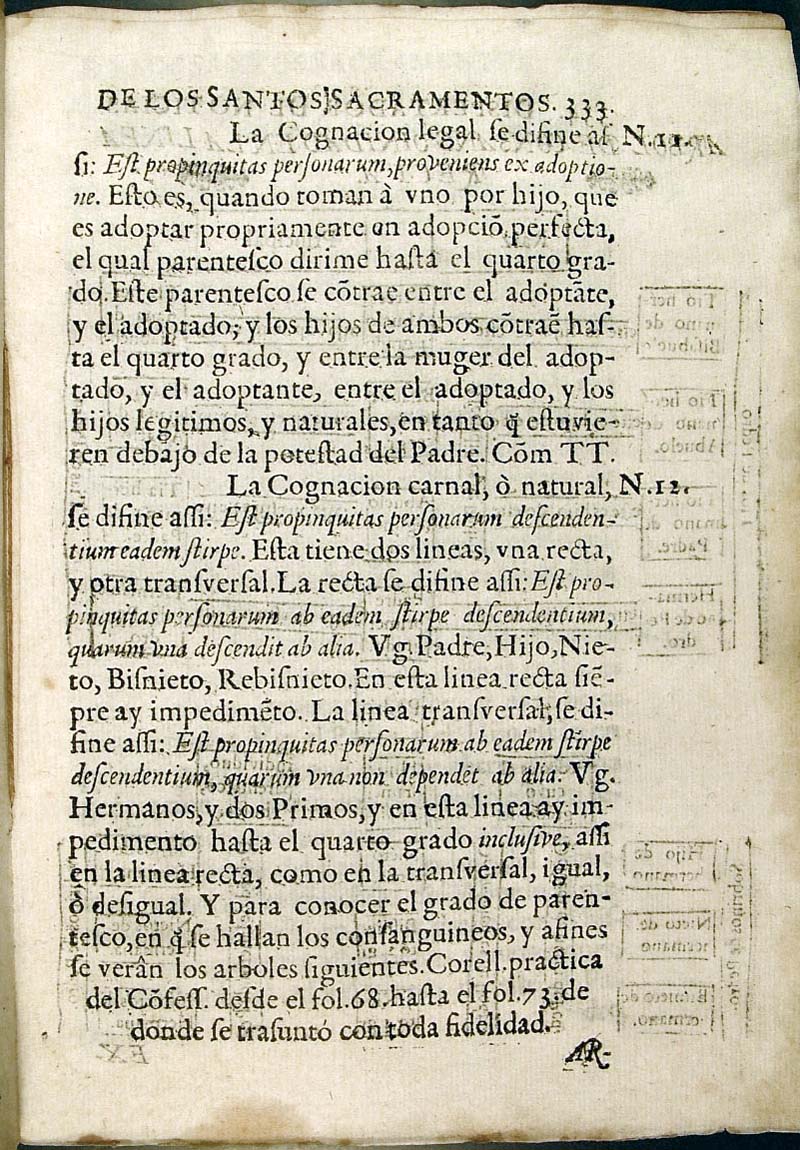 DE LOS SANTOS SACRAMENTOS. 333.
La Cognacion legal se difine as N.11.
si: Est propinquitas personarum, proveniens ex adoptio-
ne. Esto es, quando toman à vno por hijo, que
es adoptar propriamente en adopciõ perfecta,
el qual parentesco dirime hasta el quarto gra-
do. Este parentesco se cõtrae entre el adoptãte,
y el adoptado, y los hijos de ambos cõtraẽ has-
ta el quarto grado, y entre la muger del adop-
tado, y el adoptante, entre el adoptado, y los
hijos legitimos, y naturales, en tanto q̃ estuvie-
ren debajo de la potestad del Padre. Cõm TT.
La Cognacion carnal, ò natural, N.12.
se difine assi: Est propinquitas personarum descenden-
tium eadem stirpe. Esta tiene dos lineas, vna recta,
y otra transversal. La recta se difine assi: Est pro-
pinquitas personarum ab eadem stirpe descendentium,
quarum vna descendit ab alia. Vg. Padre, Hijo, Nie-
to, Bisnieto, Rebisnieto. En esta linea recta siẽ-
pre ay impedimẽto. La linea transversal, se di-
fine assi: Est propinquitas personarum ab eadem stirpe
descendentium, quarum vna non dependet ab alia. Vg.
Hermanos, y dos Primos, y en esta linea ay im-
pedimento hasta el quarto grado inclusive, assi
en la linea recta, como en la transversal, igual,
ò desigual. Y para conocer el grado de paren-
tesco, en q̃ se hallan los consanguineos, y afines
se veràn los arboles siguientes. Corell. practica
del Cõfess. desde el fol. 68. hasta el fol. 73. de
donde se trasuntó con toda fidelidad.
AR-